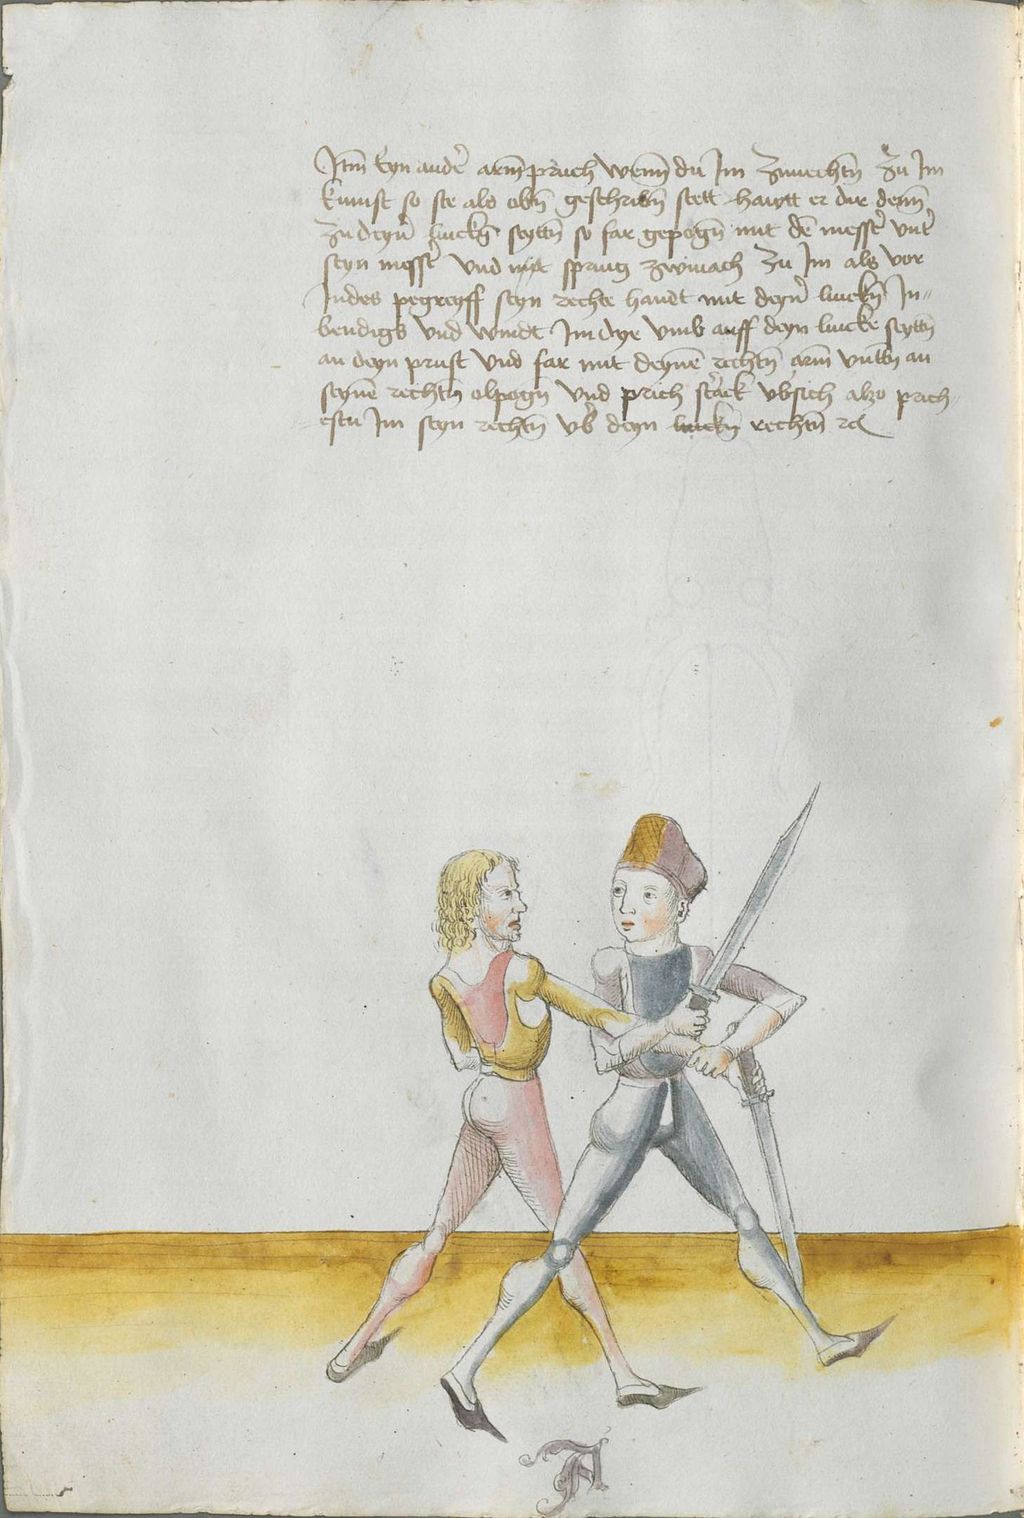 Itm̄ Eyn ander̄ arm̄pruch wenn̄ du Im Zmuechtn̄ Zu Im
kumst so ste als obn̄ geschribn̄ stett hawtt er dir denn̄
Zu deyn̄ linckn̄ seyttn̄ so far gepogn̄ mit dē messer̄ vnter̄
seyn messer̄ Vnd spring zwinach Zu Im als vor
Indes pegreyff seyn rechte handt mit deyner̄ linckn̄ In-
bendigs Vnd windt Im dye vmb auff deyn lincke seyttn̄
an deyn prust Vnd far mit deynē rechtn̄ arm̄ vnttn̄ an
seynē rechtn̄ elpogn̄ Vnd prich starck vbsich alzo prich-
estu Im seyn rechtn̄ vb̄ deyn linckn̄ rechtn̄ ꝛc
A